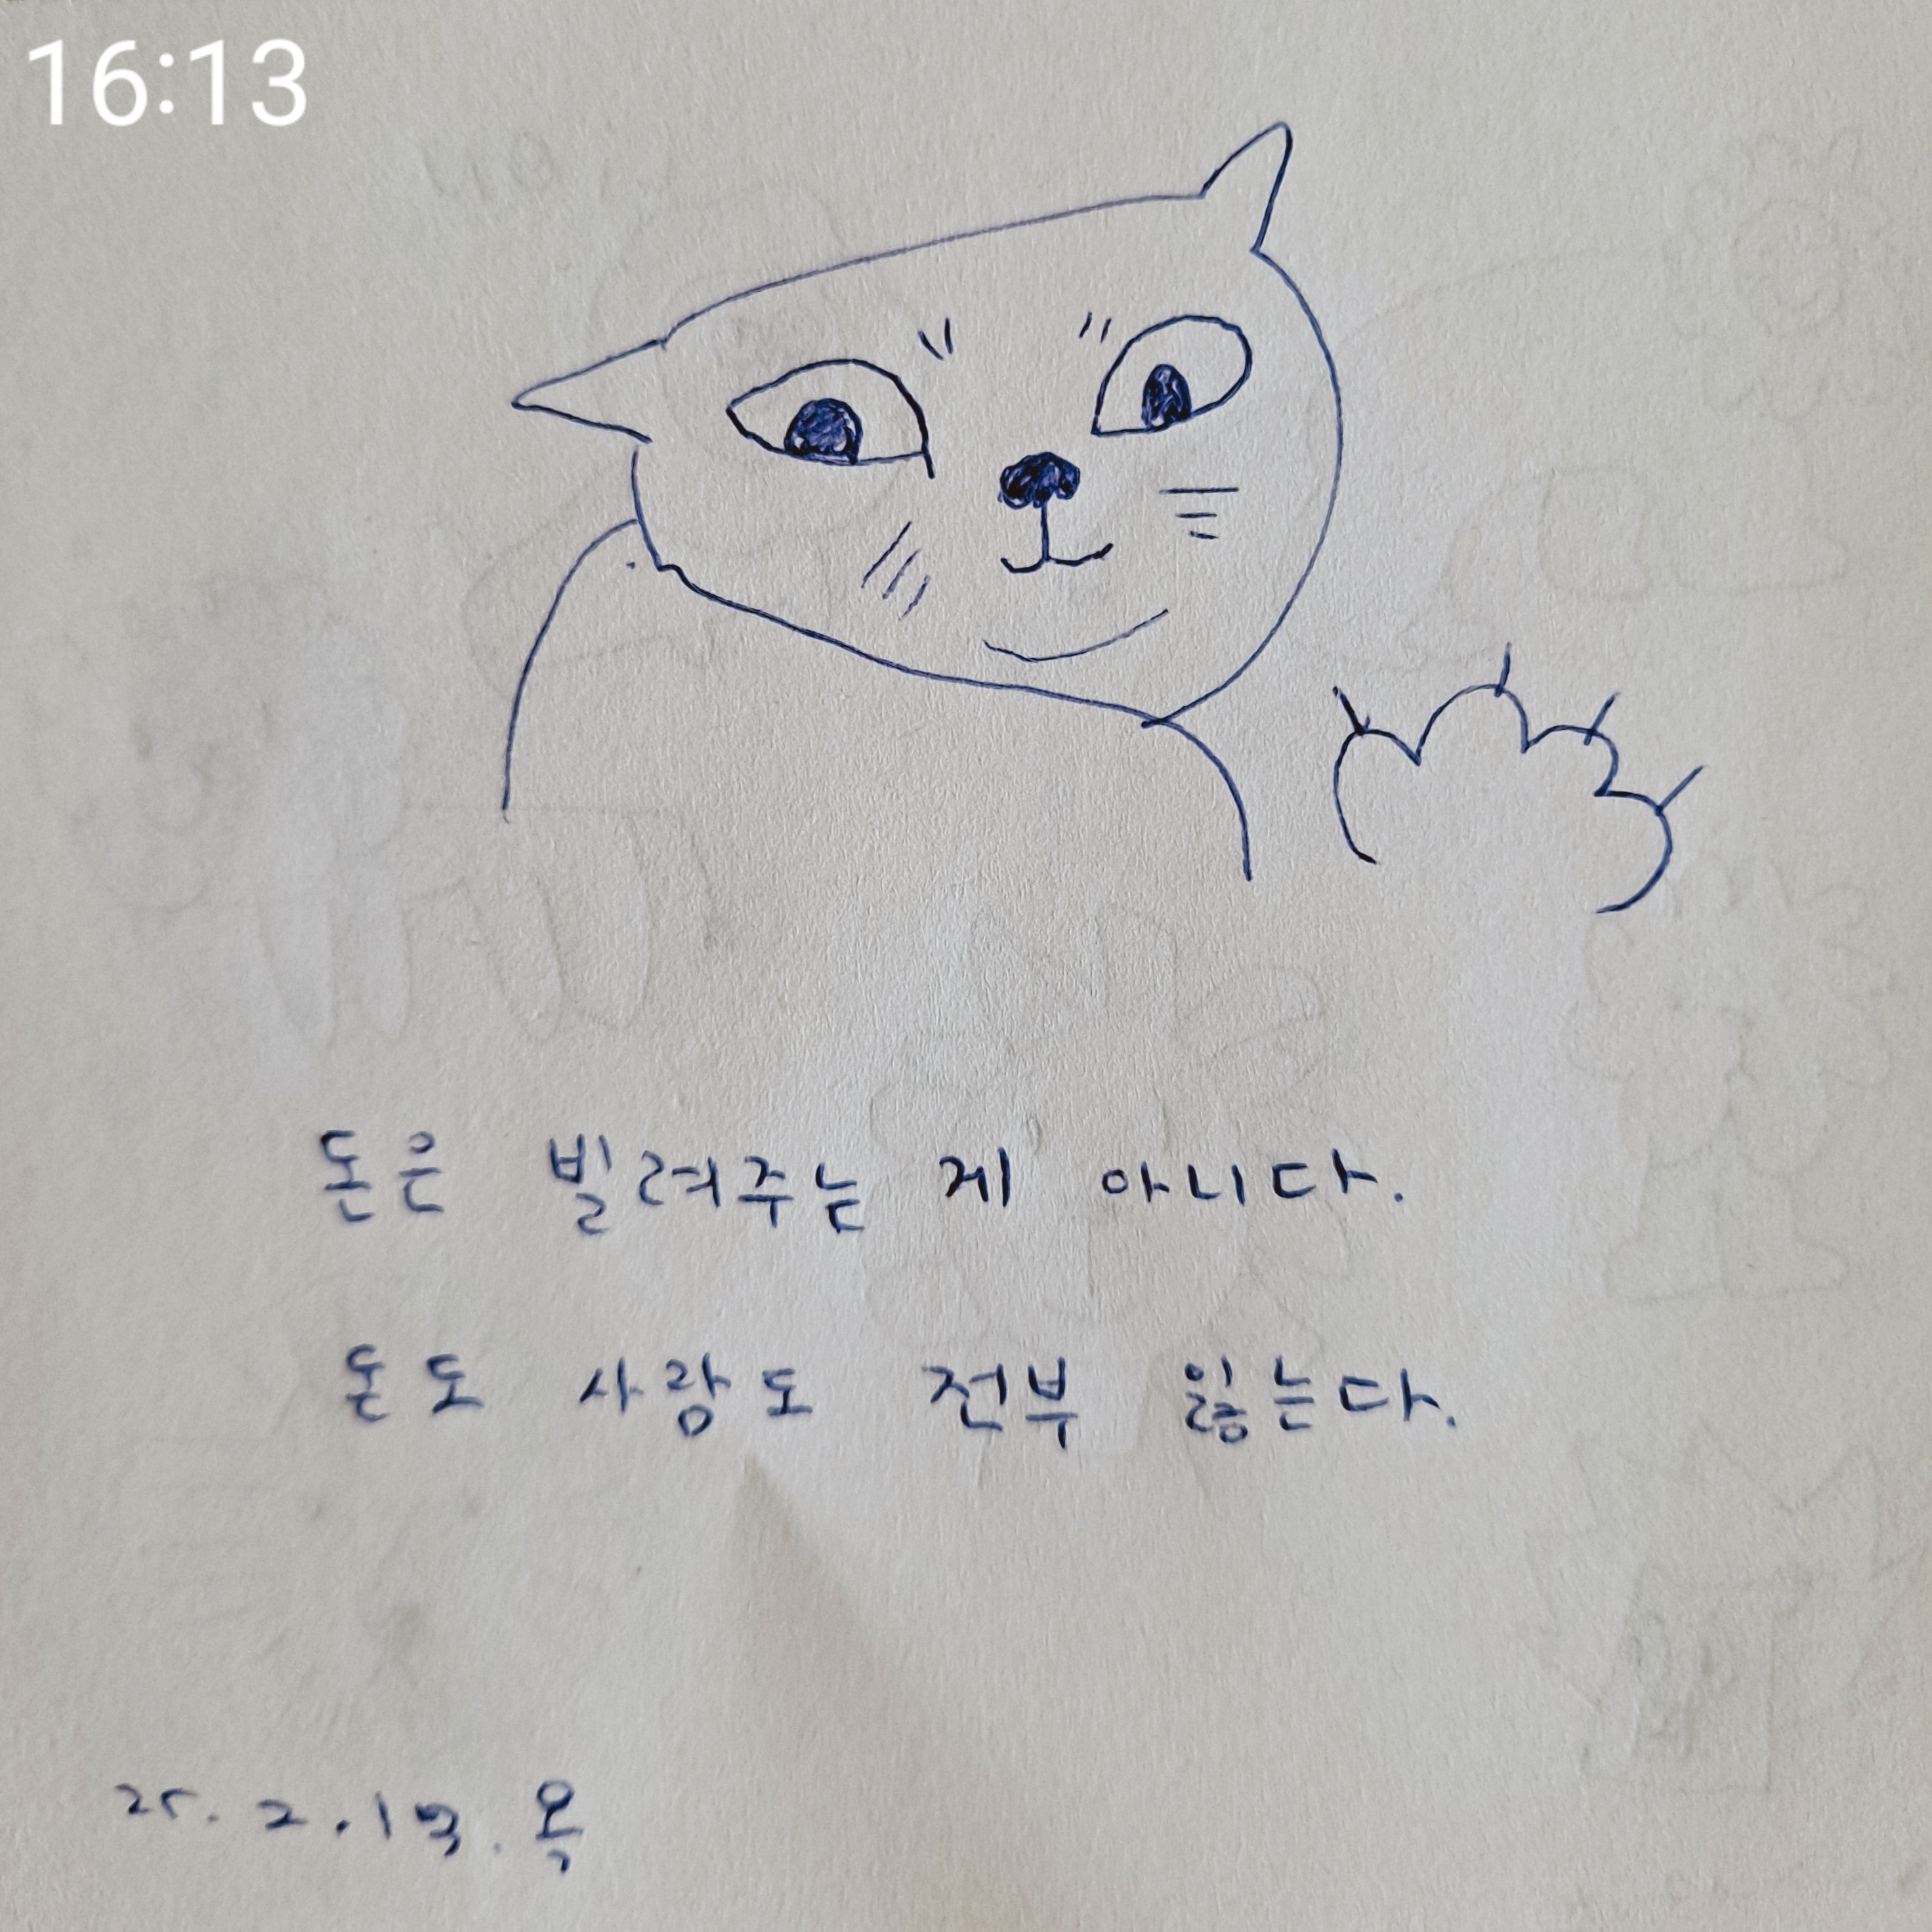 16:13
돈은 빌려주는 게 아니다.
돈도 사람도 전부 잃는다.
25. 2.13. 목